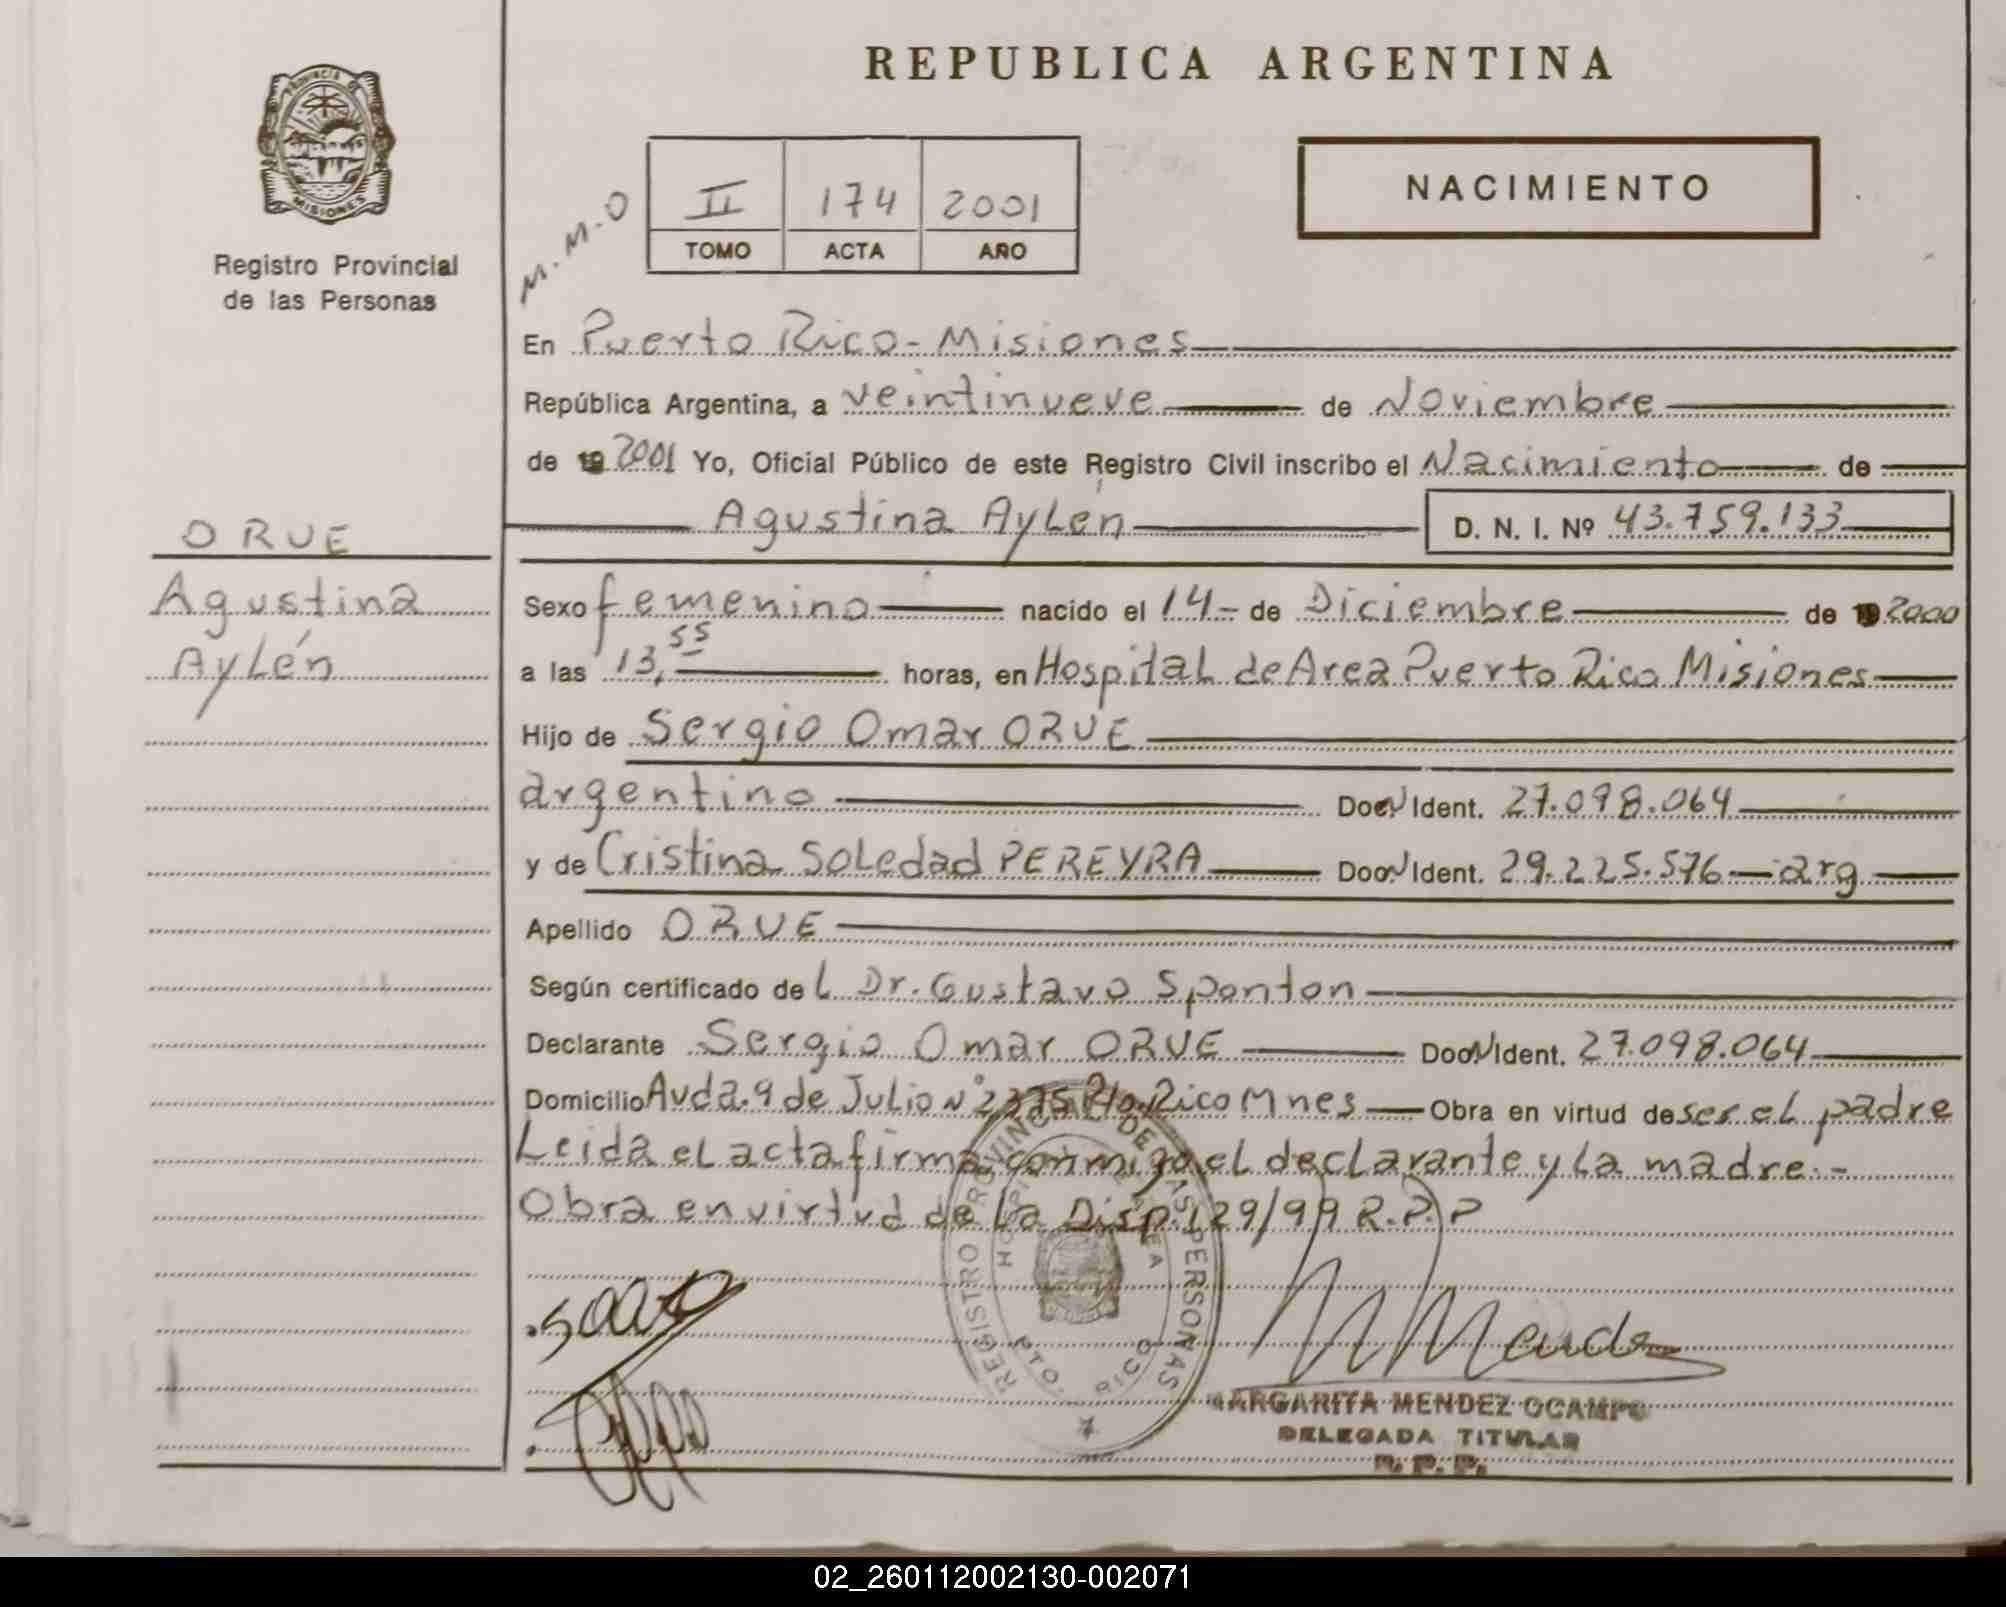 REPUBLICA ARGENTINA
PROVINCIA DE
MISIONES
Registro Provincial
de las Personas
M.M.O
II 174 2001
TOMO ACTA AÑO
NACIMIENTO
En Puerto Rico - Misiones
República Argentina, a veintinueve de Noviembre
de 19 2001 Yo, Oficial Público de este Registro Civil inscribo el Nacimiento de
Agustina Aylén D. N. I. Nº 43.759.133
ORUE
Agustina
Aylén
Sexo femenino nacido el 14 - de Diciembre de 19 2000
a las 13,55 horas, en Hospital de Area Puerto Rico Misiones
Hijo de Sergio Omar ORUE
argentino Ident. 27.098.064
y de Cristina Soledad PEREYRA Ident. 29.225.576 - arg
Apellido ORUE
Según certificado del Dr. Gustavo Sponton
Declarante Sergio Omar ORUE Ident. 27.098.064
Domicilio Avda. 9 de Julio Nº Pto. Rico Mnes Obra en virtud de ser el padre
Leida el acta firma conmigo el declarante y la madre.-
Obra en virtud de la Disp. 129/99 R.P.P
REGISTRO PROVINCIAL DE LAS PERSONAS
HOSPITAL AREA
PTO. RICO
MARGARITA MENDEZ OCAMPO
DELEGADA TITULAR
R. P. P.
02_260112002130-002071